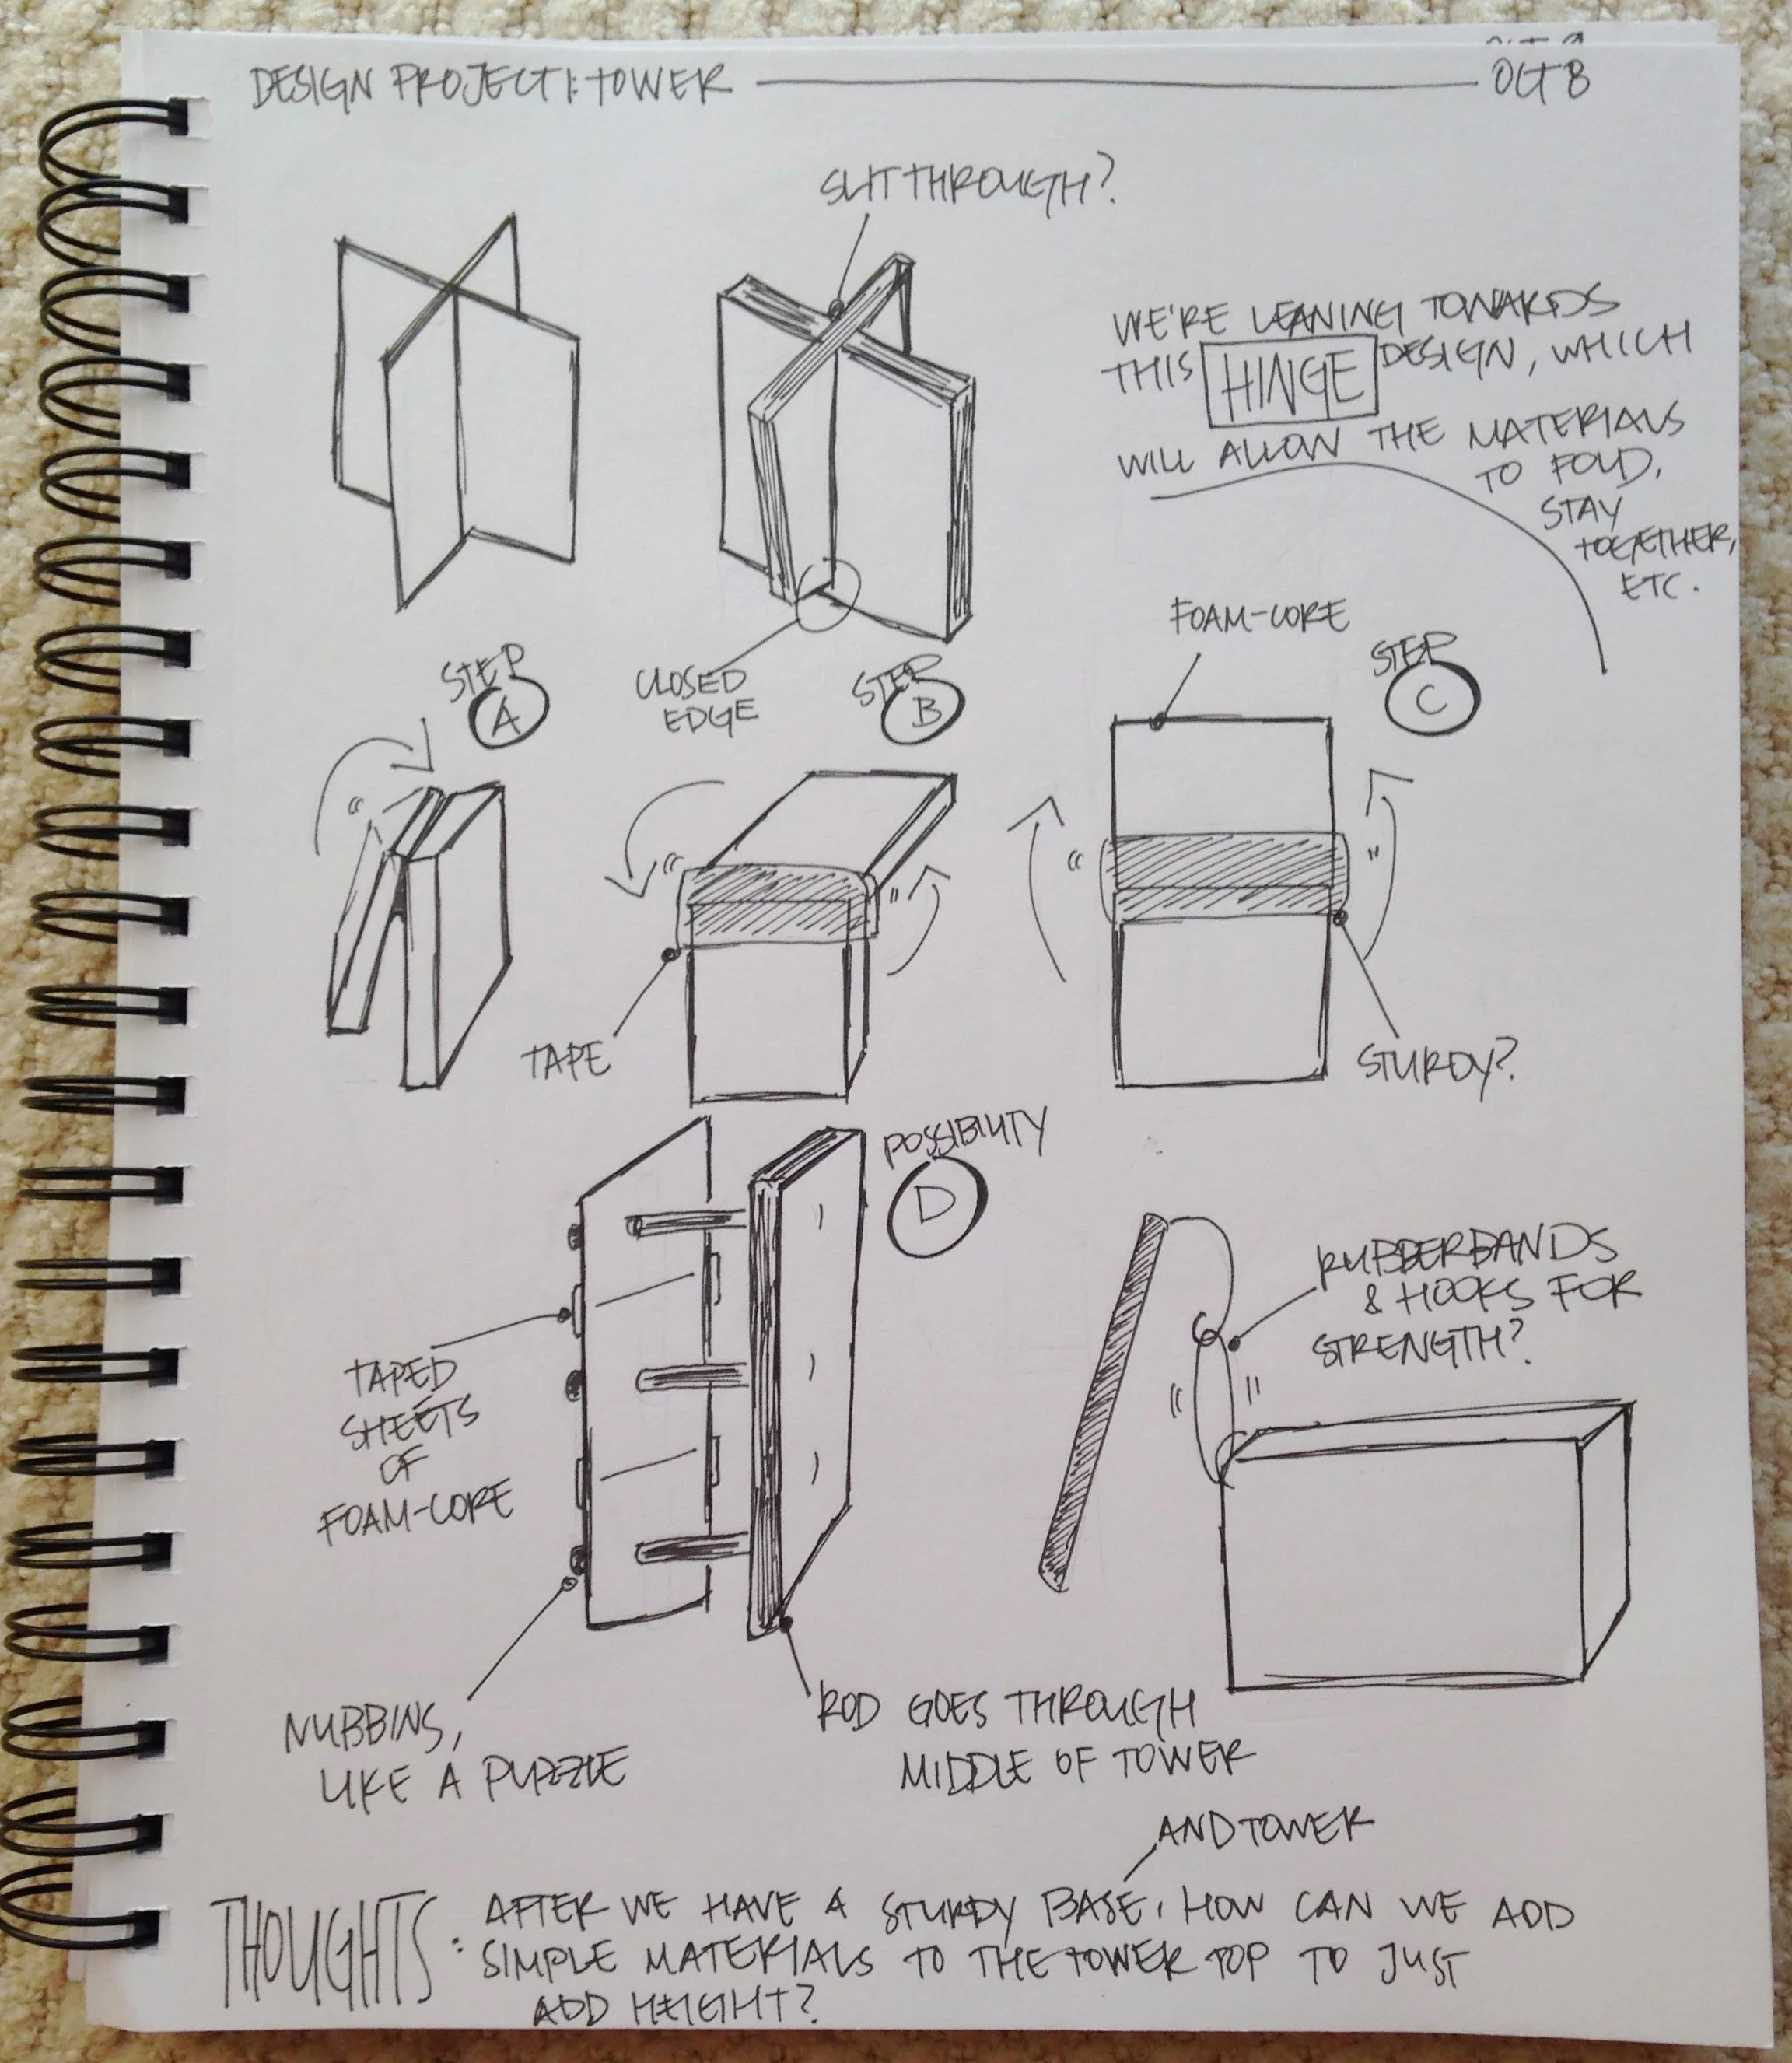 DESIGN PROJECT 1: TOWER
OCT 8
SLIT THROUGH?
WE'RE LEANING TOWARDS
THIS HINGE DESIGN, WHICH
WILL ALLOW THE MATERIALS
TO FOLD,
STAY
TOGETHER,
ETC.
CLOSED
EDGE
STEP
A
STEP
B
STEP
C
FOAM-CORE
TAPE
STURDY?
POSSIBILITY
D
TAPED
SHEETS
OF
FOAM-CORE
RUBBERBANDS
& HOOKS FOR
STRENGTH?
NUBBINS,
LIKE A PUZZLE
ROD GOES THROUGH
MIDDLE OF TOWER
AND TOWER
THOUGHTS: AFTER WE HAVE A STURDY BASE, HOW CAN WE ADD
SIMPLE MATERIALS TO THE TOWER TOP TO JUST
ADD HEIGHT?